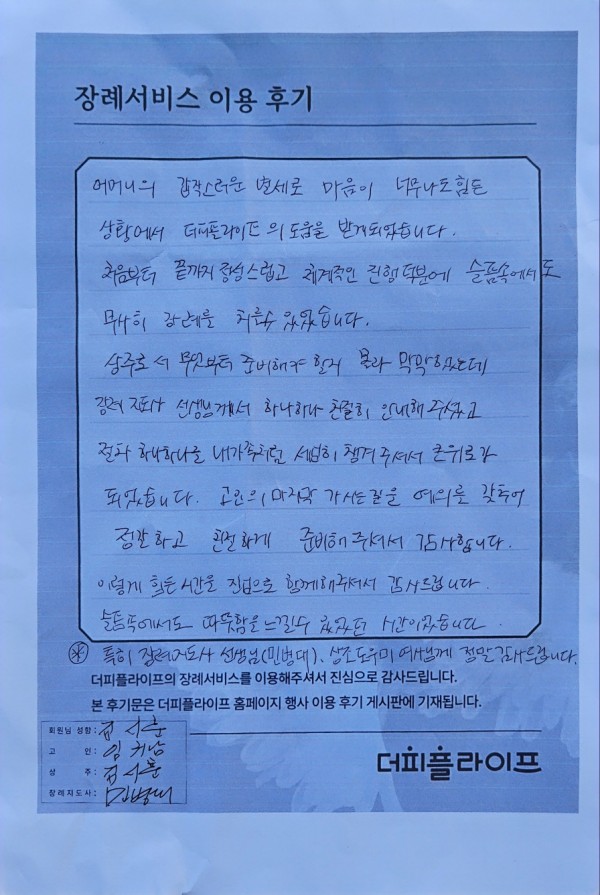 장례서비스 이용 후기
어머니의 갑작스러운 별세로 마음이 너무나도 힘든
상황에서 더피플라이프의 도움을 받게되었습니다.
처음부터 끝까지 정성스럽고 체계적인 진행덕분에 슬픔속에서도
무사히 장례를 치를수 있었습니다.
상주로서 무엇부터 준비해야 할지 몰라 막막했는데
장례지도사 선생님께서 하나하나 친절히 안내해 주셨고
절차 하나하나를 내가족처럼 세심히 챙겨주셔서 큰위로가
되었습니다. 고인의 마지막 가시는길을 예의를 갖추어
정갈하고 준비해주셔서 감사합니다.
이렇게 힘든시간을 진심으로 함께해주셔서 감사드립니다.
슬픔속에서도 따뜻함을 느낄수 있었던 시간이었습니다.
※ 특히 장례지도사 선생님(민병대), 상조도우미 여사님께 정말감사드립니다.
더피플라이프의 장례서비스를 이용해주셔서 진심으로 감사드립니다.
본 후기문은 더피플라이프 홈페이지 행사 이용 후기 게시판에 기재됩니다.
회원님 성함:
고 인: 임
상 주:
장례지도사: 민병대
더피플라이프